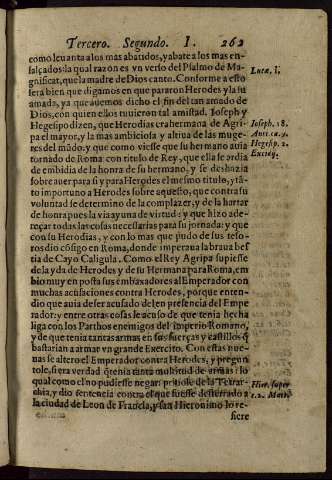 Tercero. Segundo. I. 262
como leuanta a los mas abatidos, y abate a los mas en-
salçados: la qual razon es vn verso del Psalmo de Ma-
gnificat, que la madre de Dios canto. Conforme a esto
sera bien que digamos en que pararon Herodes y la su
amada, ya que auemos dicho el fin del tan amado de
Dios, con quien ellos tuuieron tal amistad. Ioseph y
Hegesipo dizen, que Herodias era hermana de Agri-
pa el mayor, y la mas ambiciosa y altiua de las muge-
res del mũdo, y que como viesse que su hermano auia
tornado de Roma con titulo de Rey, que ella se ardia
de embidia de la honra de su hermano, y se deshazia
sobre auer para si y para Herodes el mesmo titulo, y tã-
to importuno a Herodes sobre aquesto, que contra su
voluntad se determino de la complazer, y de la hartar
de honra pues la via ayuna de virtud: y que hizo ade-
reçar todas las cosas necessarias para su jornada: y que
con su Herodias, y con lo mas que pudo de sus teso-
ros dio cōsigo en Roma, donde imperaua la braua bes
tia de Cayo Caligula. Como el Rey Agripa supiesse
de la yda de Herodes y de su Hermana para Roma, em
bio muy en posta sus embaxadores al Emperador con
muchas acusaciones contra Herodes, porque enten-
dio que auia de ser acusado del en presencia del Empe-
rador: y entre otras cosas le acuso de que tenia hecha
liga con los Parthos enemigos del imperio Romano,
y de que tenia tantas armas en sus fuerças y castillos q̃
bastarian a armar vn grande Exercito. Con estas nue-
uas se altero el Emperador contra Herodes, y pregun
tole, si era verdad q̃ tenia tanta moltitud de armas: lo
qual como el no pudiesse negar: priuole de la Tetrar-
chia, y dio sentencia contra el que fuesse desterrado a
la ciudad de Leon de Francia, y san Hieronimo lo re-
fiere
Lucæ, I,
Ioseph. 18.
Hegesip. 2.
Hier. super